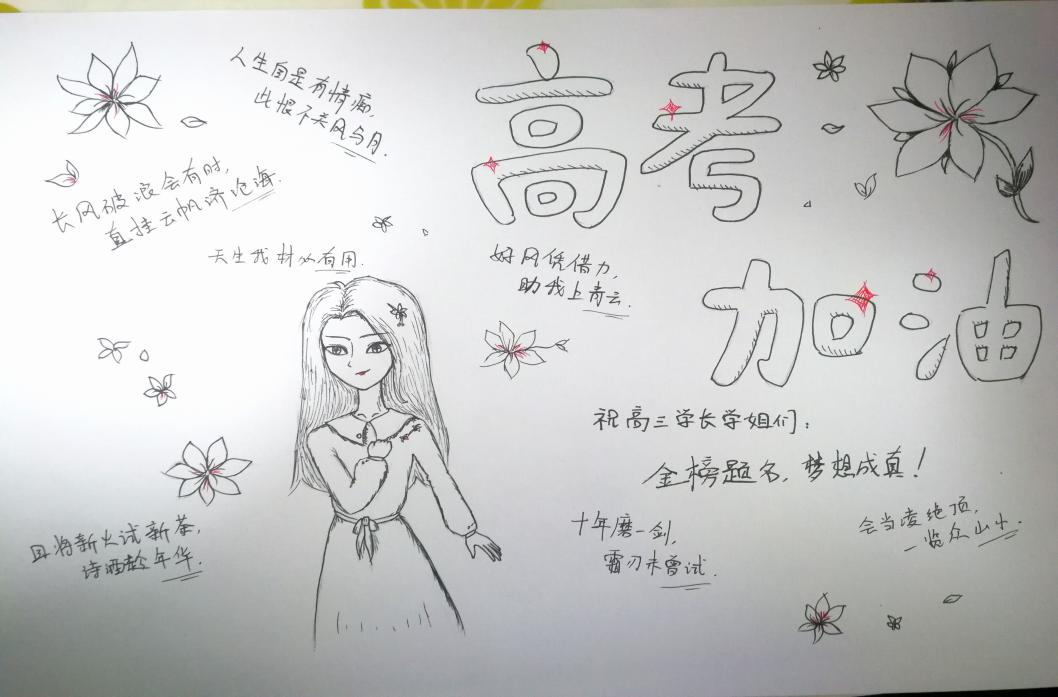 高考
加油
人生自是有情痴,
此恨不关风与月.
长风破浪会有时,
直挂云帆济沧海.
天生我材必有用.
好风凭借力,
助我上青云.
祝高三学长学姐们:
金榜题名,梦想成真!
十年磨一剑,
霜刃未曾试.
会当凌绝顶,
一览众山小.
且将新火试新茶,
诗酒趁年华.